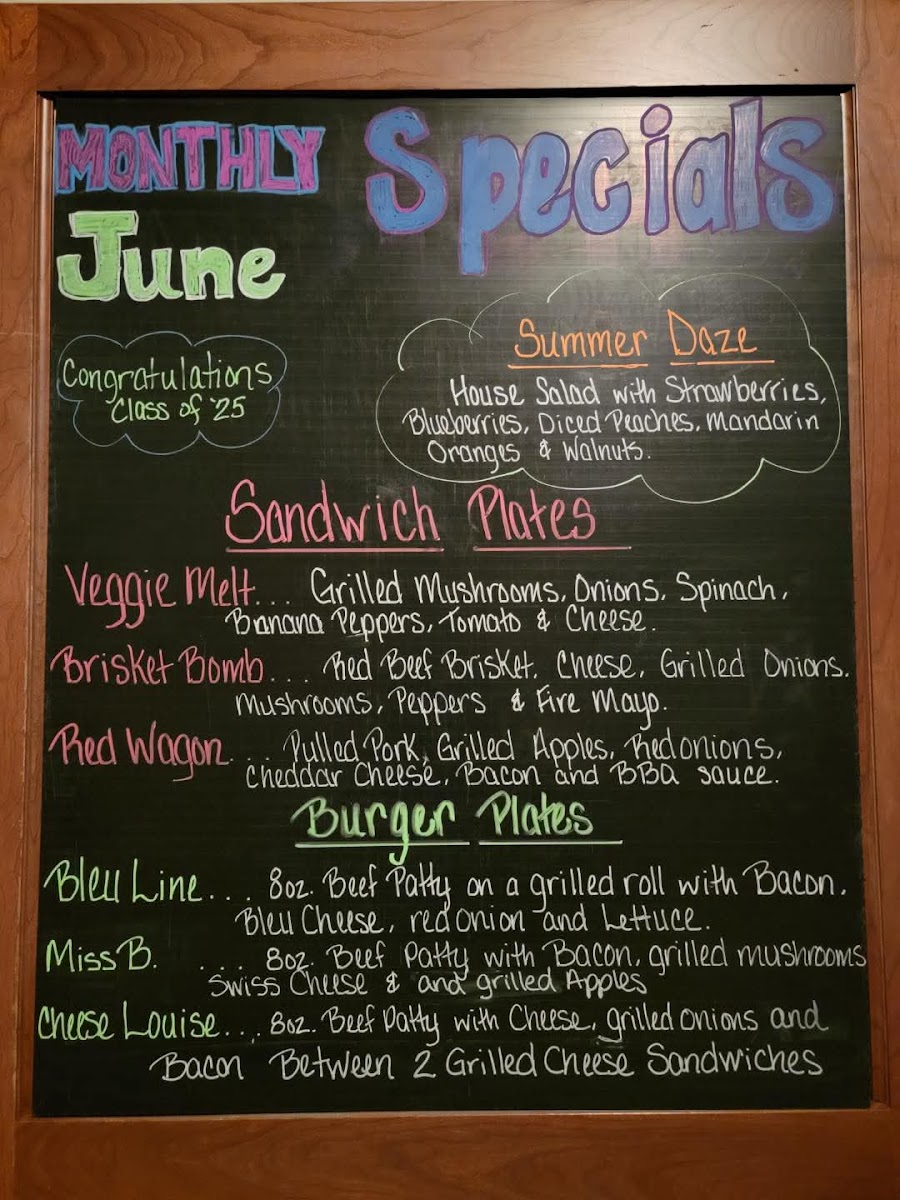 MONTHLY Specials
June
Congratulations
Class of '25
Summer Daze
House Salad with Strawberries,
Blueberries, Diced Peaches, Mandarin
Oranges & Walnuts.
Sandwich Plates
Veggie Melt... Grilled Mushrooms, Onions, Spinach,
Banana Peppers, Tomato & Cheese.
Brisket Bomb... Red Beef Brisket, Cheese, Grilled Onions,
Mushrooms, Peppers & Fire Mayo.
Red Wagon... Pulled Pork, Grilled Apples, Red onions,
Cheddar Cheese, Bacon and BBQ sauce.
Burger Plates
Bleu Line.... 8oz. Beef Patty on a grilled roll with Bacon,
Bleu Cheese, red onion and Lettuce.
Miss B. .... 8oz. Beef Patty with Bacon, grilled mushrooms
Swiss Cheese & and grilled Apples
Cheese Louise.... 8oz. Beef Patty with Cheese, grilled onions and
Bacon Between 2 Grilled Cheese Sandwiches